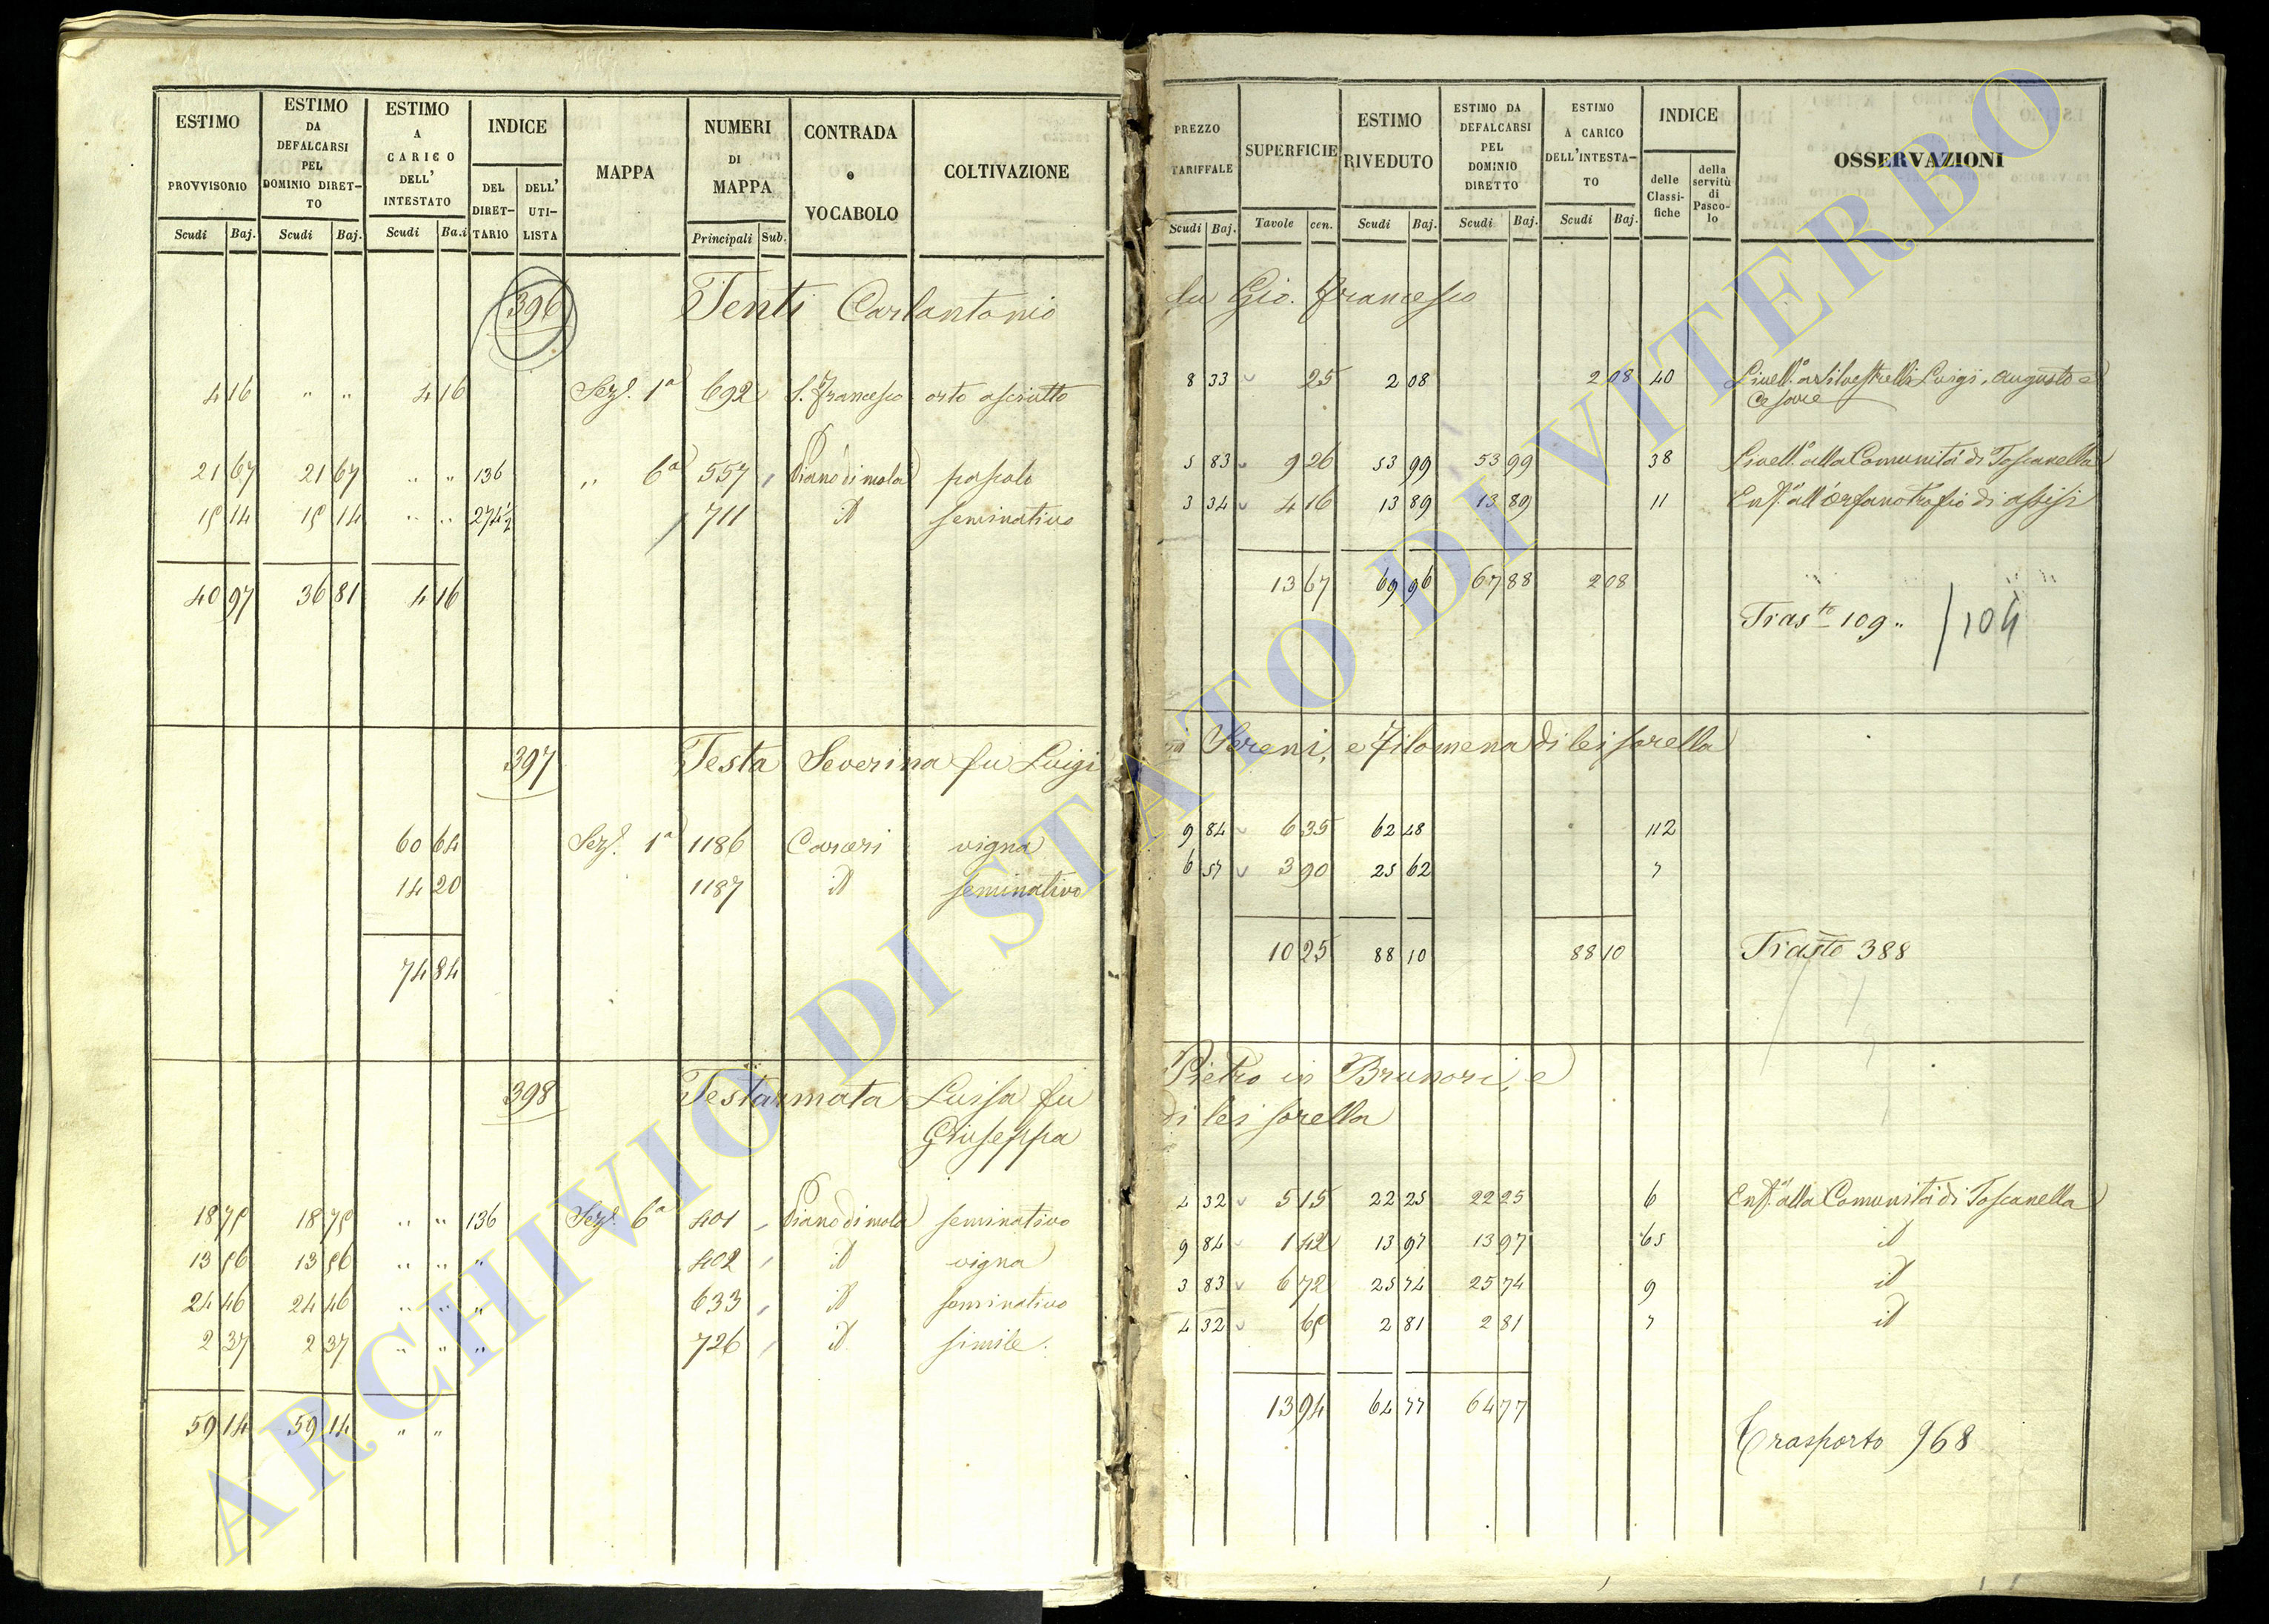 ESTIMO PROVVISORIO
ESTIMO DA DEFALCARSI PEL DOMINIO DIRET-TO
ESTIMO A CARICO DELL' INTESTATO
INDICE
DEL DIRET-TARIO
DELL' UTI-LISTA
MAPPA
NUMERI DI MAPPA
CONTRADA o VOCABOLO
COLTIVAZIONE
Scudi Baj. Scudi Baj. Scudi Ba.i Principali Sub.
396 Tenti Carlantonio
4 16 " " 4 16 Seze. 1a 692 S. Francesco orto asciutto
21 67 21 67 " " 136 " 6a 557 Piano di mola pascolo
15 14 15 14 " " 274½ 711 id seminativo
40 97 36 81 4 16
397 Testa Severina fu Luigi
60 64 Sez. 1a 1186 Carcari vigna
14 20 1187 id seminativo
74 84
398 Testarmata Luisa fu
Giuseppa
18 75 18 75 " " 136 Sez. 6a 401 Piano di mola seminativo
13 56 13 56 " " " 402 id vigna
24 46 24 46 " " " 633 id seminativo
2 37 2 37 " " " 726 id simile
59 14 59 14 " "
PREZZO TARIFFALE
SUPERFICIE
ESTIMO RIVEDUTO
ESTIMO DA DEFALCARSI PEL DOMINIO DIRETTO
ESTIMO A CARICO DELL'INTESTA-TO
INDICE
delle Classi-fiche
della servitù di Pasco-lo
OSSERVAZIONI
Scudi Baj. Tavole cen. Scudi Baj. Scudi Baj. Scudi Baj.
fu Gio. Francesco
8 33 25 2 08 2 08 40 Livell.o a Silvestrelli Luigi, Augusto e
Cesare
5 83 9 26 53 99 53 99 38 Livell.o alla Comunità di Toscanella
3 34 4 16 13 89 13 89 11 Enf.a all'Orfanotrofio di Assisi
13 67 69 96 67 88 2 08
Tras.to 109 " / 104
Sereni, e Filomena di lei sorella
9 84 6 35 62 48 112
6 57 3 90 25 62 7
10 25 88 10 88 10 Trasto 388
Pietro in Brunori, e
di lei sorella
4 32 5 15 22 25 22 25 6 Enf.a alla Comunità di Toscanella
9 84 1 42 13 97 13 97 65 id
3 83 6 72 25 74 25 74 9 id
4 32 65 2 81 2 81 7 id
13 94 64 77 64 77
Trasporto 968
ARCHIVIO DI STATO DI VITERBO